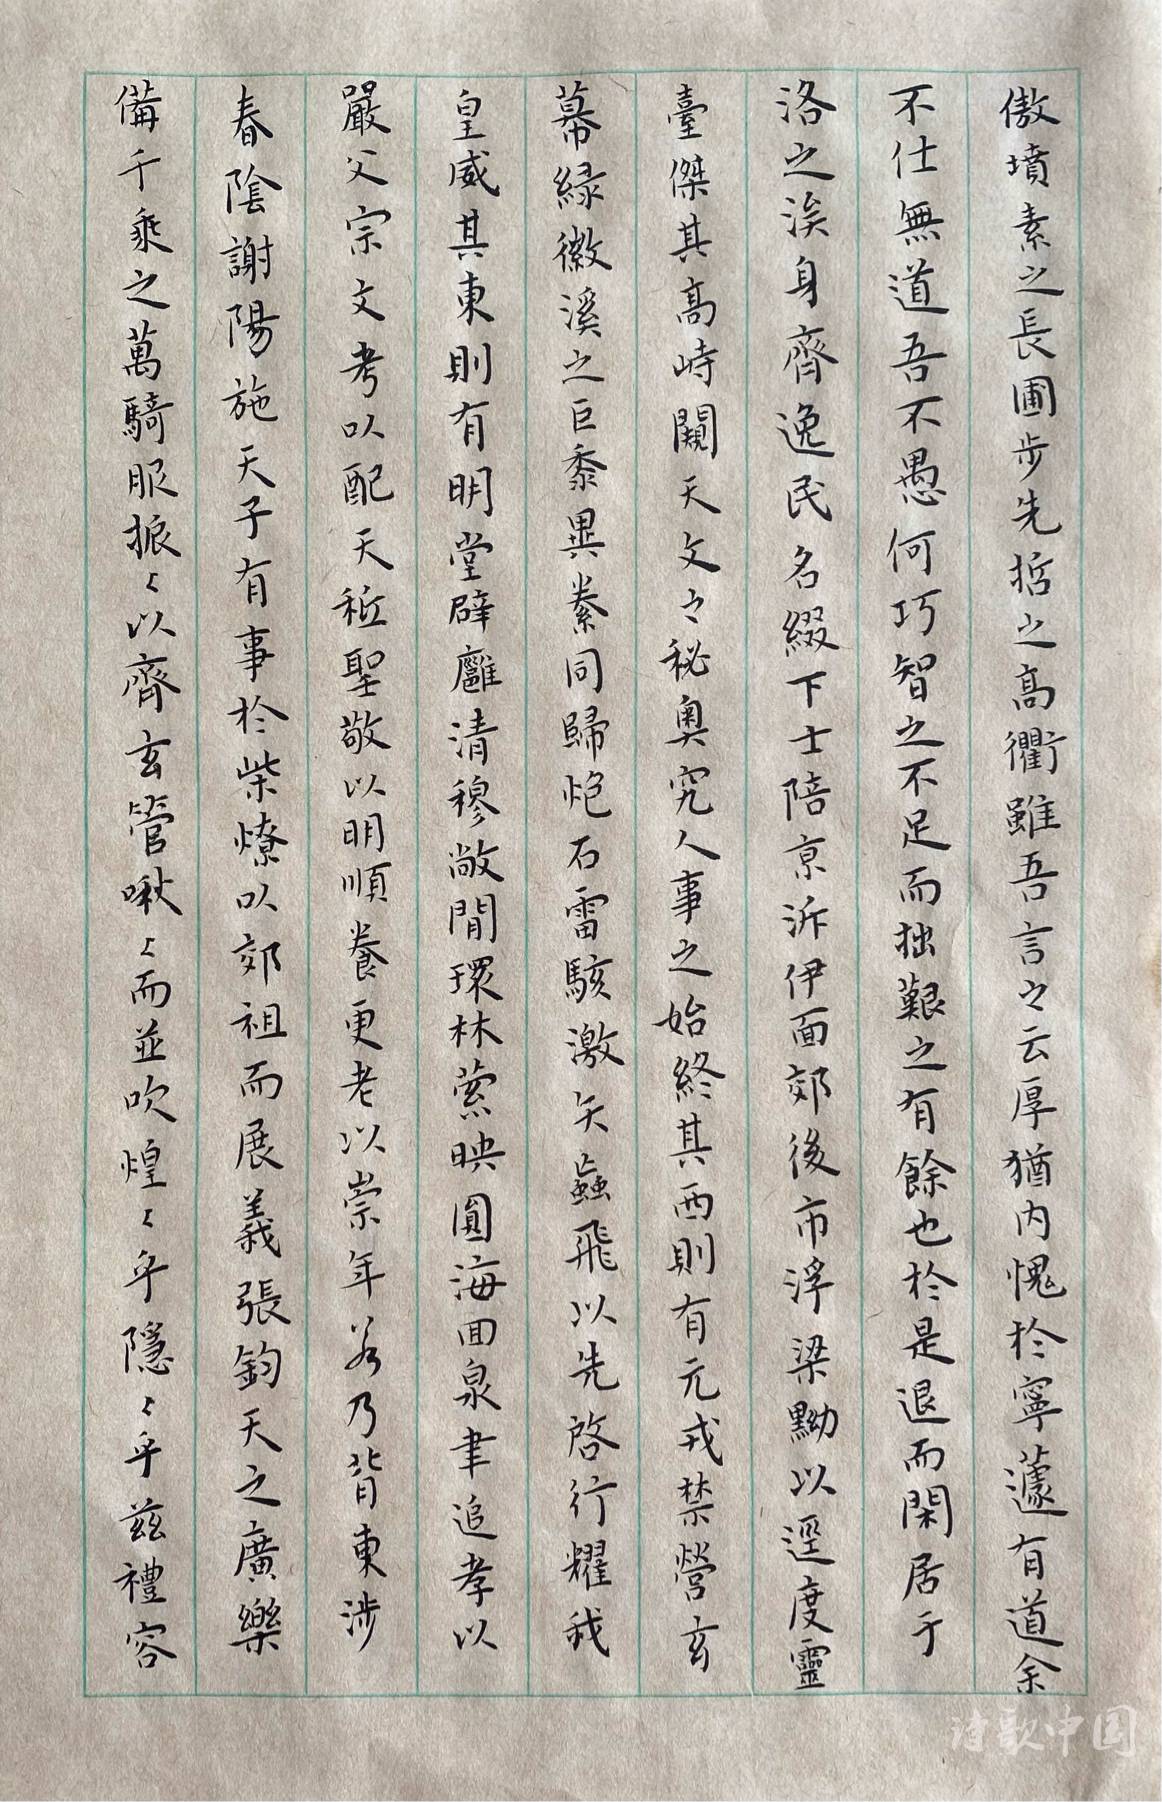 傲墳素之長圃步先哲之高衢雖吾言之云厚猶内愧於寧蘧有道余
不仕無道吾不愚何巧智之不足而拙艱之有餘也於是退而閑居于
洛之涘身齊逸民名綴下士陪京泝伊面郊後市浮梁黝以逕度靈
臺傑其高峙闚天文之秘奥究人事之始終其西則有元戎禁營玄
幕緑徽溪之巨黍異絭同歸炮石雷駭激矢蝱飛以先啓行耀我
皇威其東則有明堂辟廱清穆敞閒環林縈映圓海回泉聿追孝以
嚴父宗文考以配天秪聖敬以明順養更老以崇年若乃背東涉
春陰謝陽施天子有事於柴燎以郊祖而展義張鈞天之廣樂
備千乘之萬騎服振々以齊玄管啾々而並吹煌々乎隱々乎兹禮容
诗歌中国